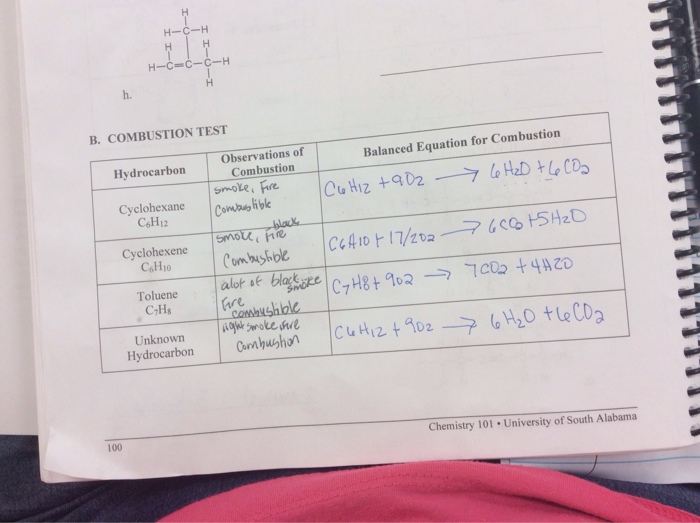 H
H-C-H
H H
H-C=C-C-H
H
h.
B. COMBUSTION TEST
Hydrocarbon
Observations of
Combustion
Balanced Equation for Combustion
Cyclohexane
C₆H₁₂
smoke, Fire
Combustible
C6H12 + 9O2 → 6H2O + 6CO2
Cyclohexene
C₆H₁₀
black
smoke, Fire
Combustible
C6H10 + 17/2O2 → 6CO2 + 5H2O
Toluene
C₇H₈
alot of black smoke
fire
combustible
C7H8 + 9O2 → 7CO2 + 4H2O
Unknown
Hydrocarbon
light smoke, fire
Combustion
C6H12 + 9O2 → 6H2O + 6CO2
Chemistry 101 • University of South Alabama
100